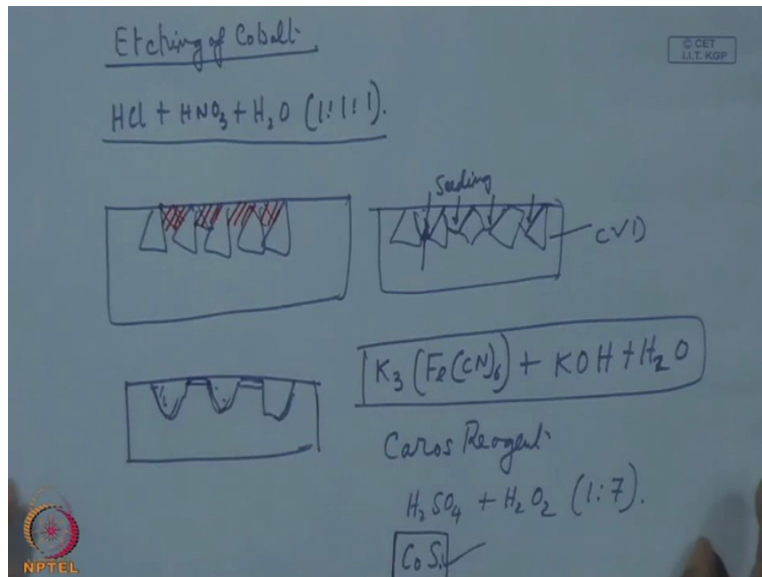 Etching of Cobalt
© CET
I.I.T. KGP
HCl + HNO3 + H2O (1:1:1).
Seeding
CVD
K3(Fe(CN)6) + KOH + H2O
Caros Reagent
H2SO4 + H2O2 (1:7).
CoSi
NPTEL